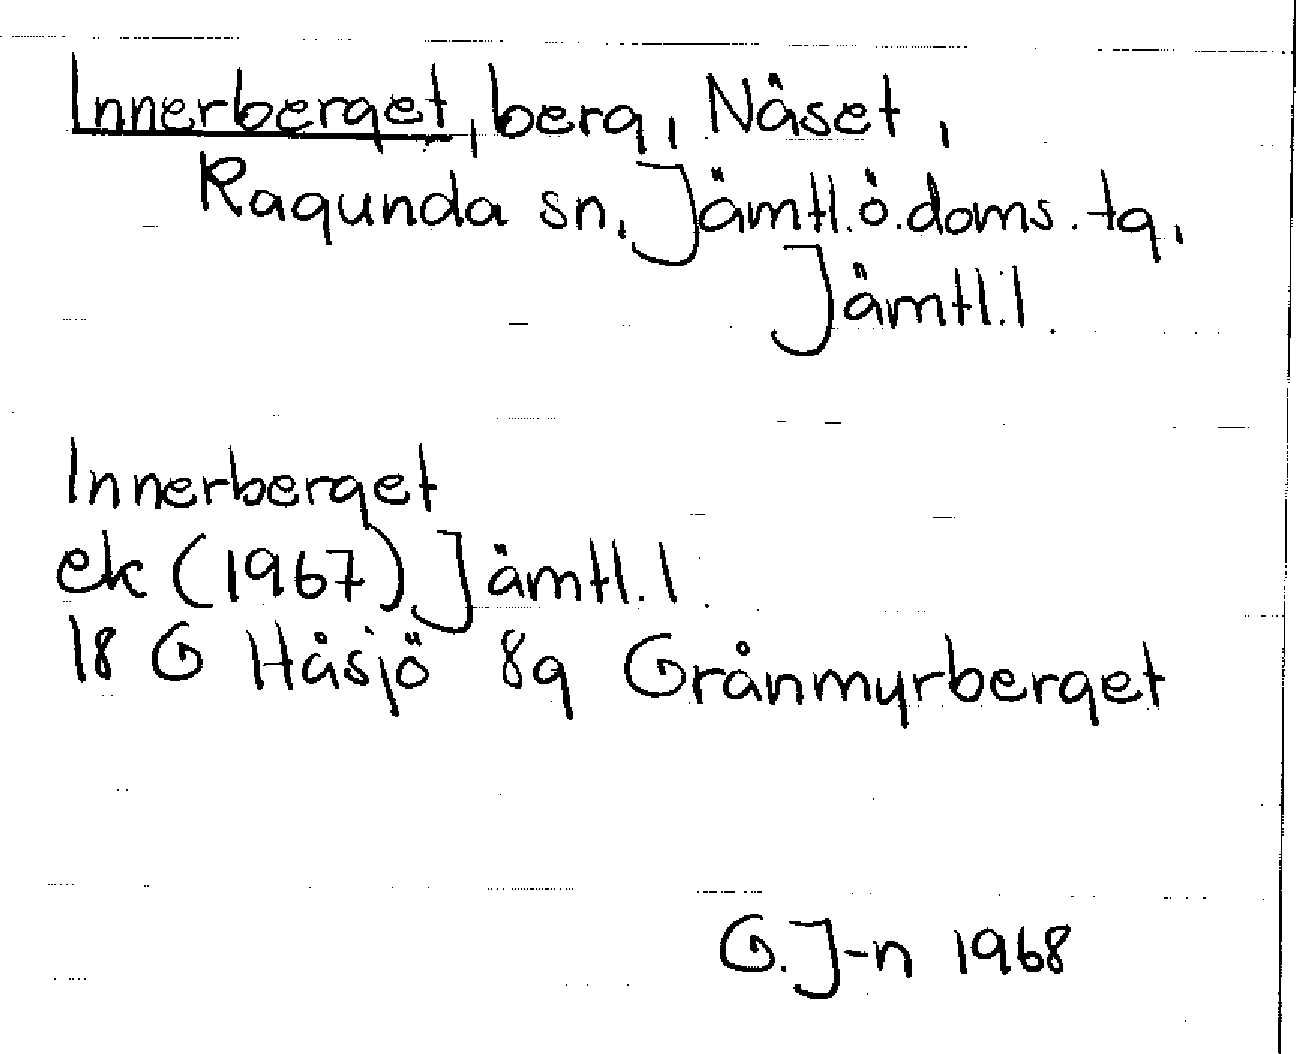 Innerberget, berg, Näset,
Ragunda sn, Jämtl.ö.doms.tg,
Jämtl.l.
Innerberget
ek (1967) Jämtl.l
18 G Håsjö 8g Grånmyrberget
G.J-n 1968